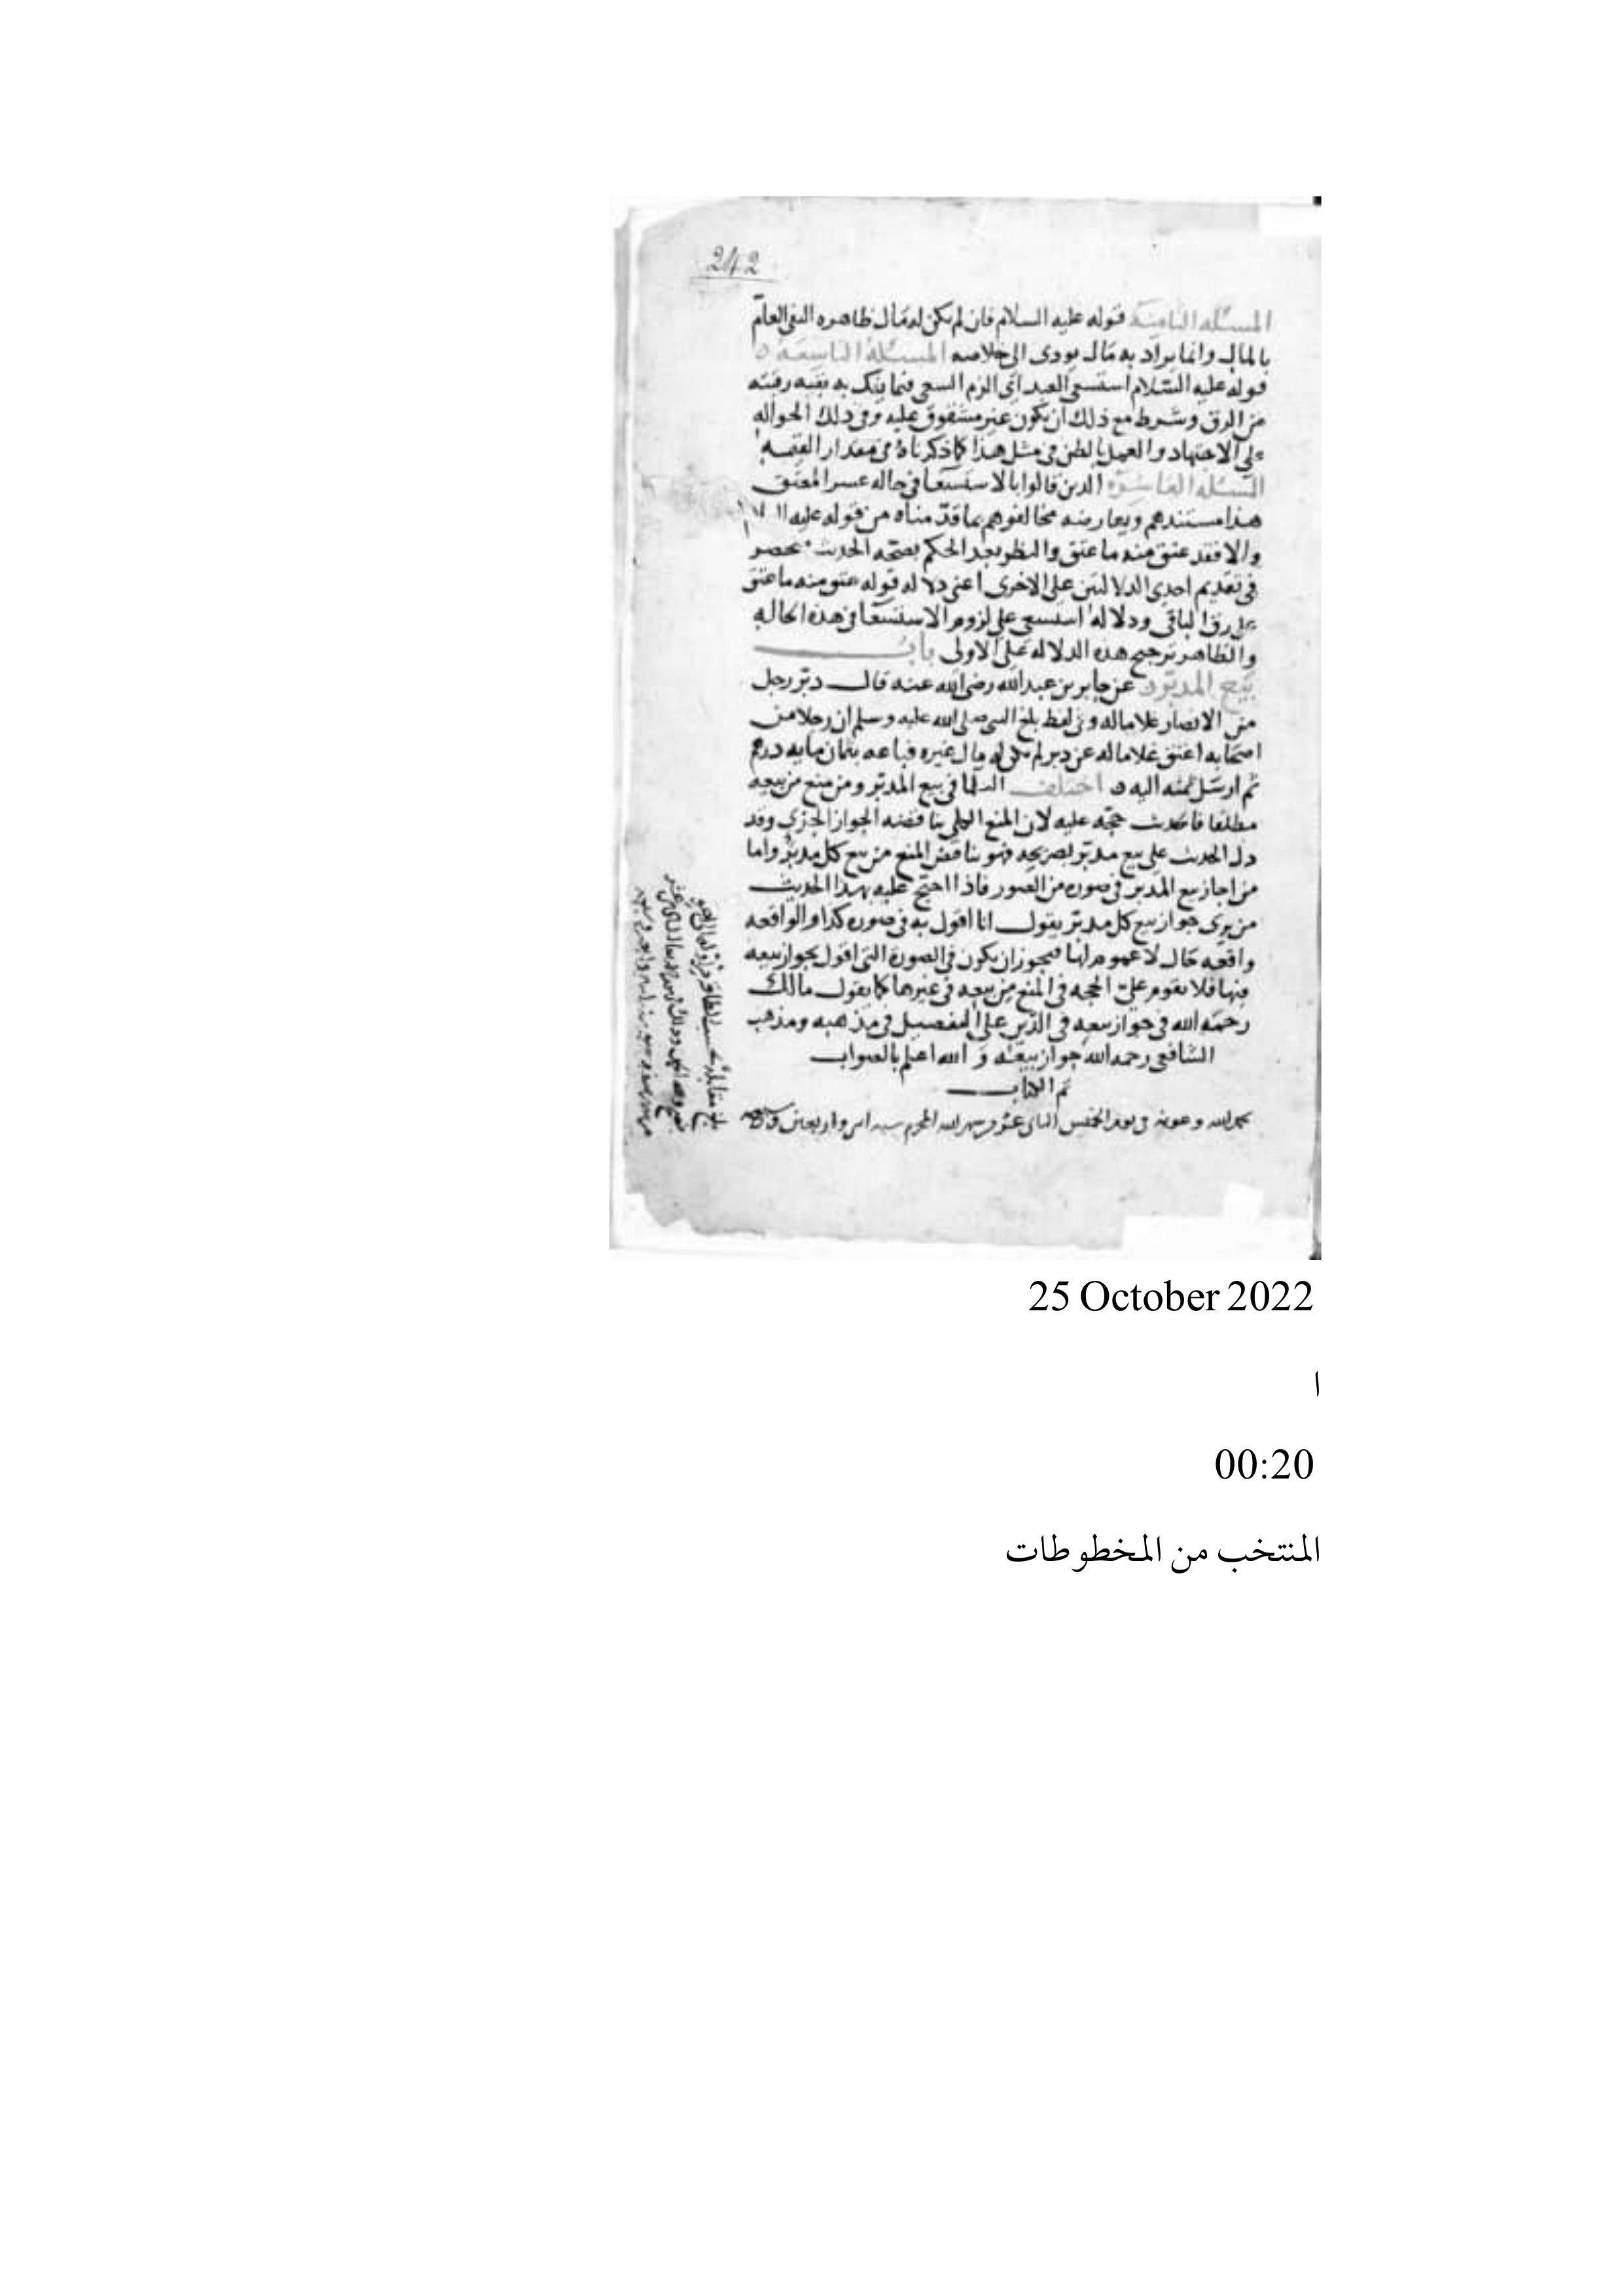 242
المسئله الثامنة قوله عليه السلام فان لم يكن له مال ظاهره النفي العام
بالمال وانما يراد به مال يودى الى خلاصه المسئلة التاسعة
قوله عليه السلام استسعى العبد اى الزم السعي فيما يفك به بقيه رقبته
من الرق وشرط مع ذلك ان يكون غير مشقوق عليه وفي ذلك الحواله
على الاجتهاد والعمل بالظن في مثل هذا كما ذكرناه في مقدار القيمه
المسئله العاشرة الذين قالوا بالاستسعا في حاله عسر المعتق
هذا مستندهم ويعارضه مخالفوهم بما قدمناه من قوله عليه
والا فقد عتق منه ما عتق والنظر بعد الحكم بصحه الحديث منحصر
في تقديم احدى الدلالتين على الاخرى اعني دلاله قوله عتق منه ما عتق
على رق الباقي ودلاله استسعي على لزوم الاستسعا في هذه الحاله
والظاهر ترجيح هذه الدلاله على الاولى باب
بيع المدبر عن جابر بن عبد الله رضي الله عنه قال دبر رجل
من الانصار غلاما له وفي لفظ بلغ النبي صلى الله عليه وسلم ان رجلا من
اصحابه اعتق غلاما له عن دبر لم يكن له مال غيره فباعه بثمان مايه درهم
ثم ارسل ثمنه اليه اختلف العلما في بيع المدبر ومن منع من بيعه
مطلقا فالحديث حجه عليه لان المنع الكلي يناقضه الجواز الجزي وقد
دل الحديث على بيع مدبر بصريحه فهو يناقض المنع من بيع كل مدبر واما
من اجاز بيع المدبر في صوره من الصور فاذا احتج عليه بهذا الحديث
من يرى جواز بيع كل مدبر يقول انا اقول به في صوره كذا والواقعه
واقعه حال لا عموم لها فيجوز ان يكون في الصورة التي اقول بجواز بيعه
فيها فلا يقوم علي الحجه في المنع من بيعه في غيرها كما يقول مالك
رحمه الله في جواز بيعه في الدين على التفصيل في مذهبه ومذهب
الشافعي رحمه الله جواز بيعه والله اعلم بالصواب
تم الكتاب
بحمد الله وعونه في يوم الخميس الثاني عشر من شهر الله المحرم سنه واربعين
بلغ مقابلة بحسب الطاقة
25 October 2022
ا
00:20
المنتخب من المخطوطات